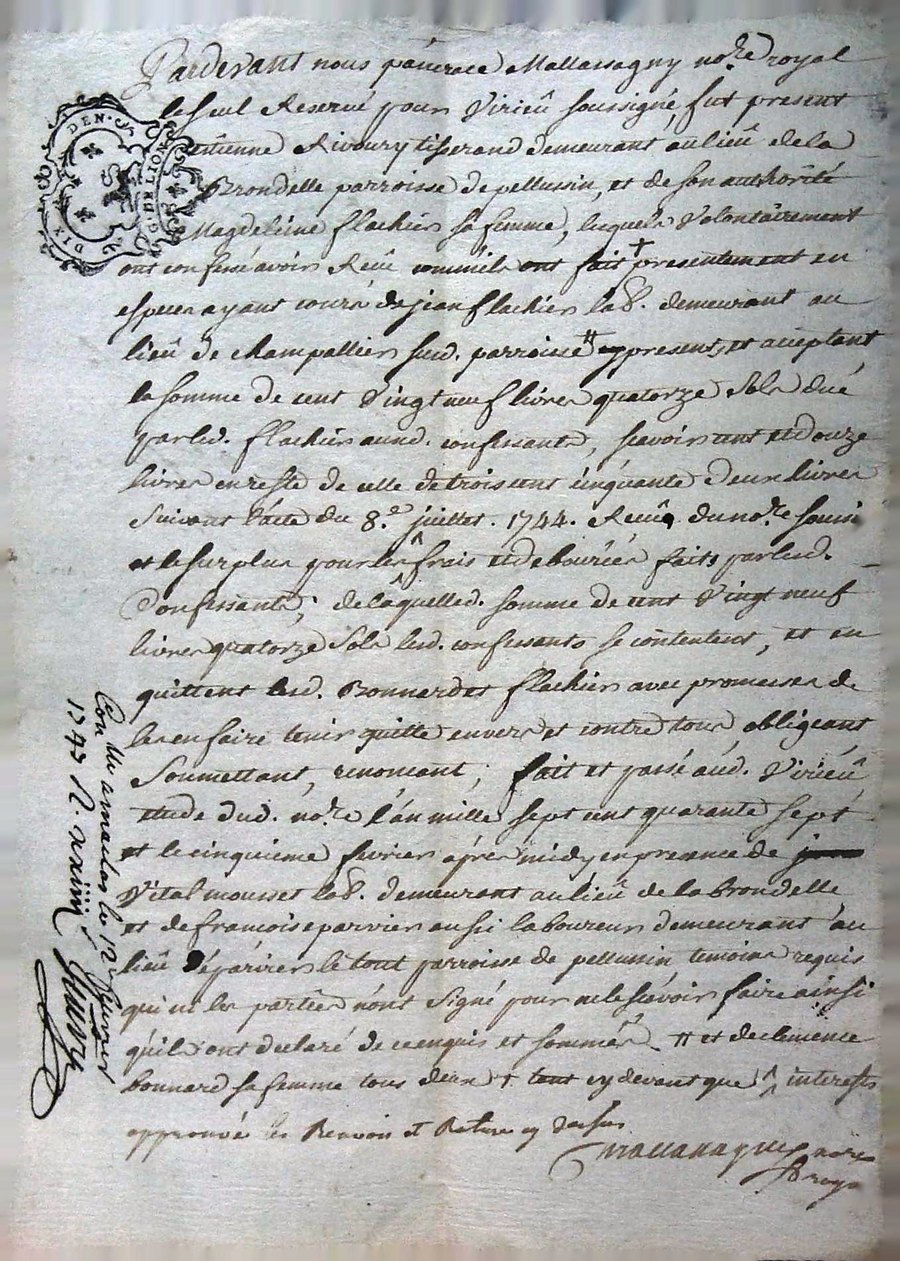 Pardevant nous pancrace Mallassagny no.re royal
le seul Reservé pour Virieû soussigné, fut present
etienne Rivoury tisserand demeurant au lieû de la
Brondelle parroisse de pellussin, et de son authorité
Magdeleine flachier sa femme, lesquels Volontairement
ont confessé avoir Receû comm'ils ont fait + presentement en
especes ayant cours de jean flachier lab.r demeurant au
lieû de champallier sud. parroisse # present, et acceptant
la somme de cent Vingt neuf livres quatorze Sols dué
par led. flachier ausd. confessants, scavoir cent et douze
livres en reste de celle de trois cent cinquante deux livres
Suivant l'acte du 8.e juillet. 1744. Receû du no.re sousi
et le surplus pour les ^ frais et debourcés faits par lesd.
Confessants; de laquelled. somme de cent Vingt neuf
livres quatorze Sols lesd. confessants se contentent, et en
quittent lesd. Bonnard et flachier avec promesses de
les en faire tenir quitte envers et contre tous obligeant
Soumettant, renoncant; fait et passé aud. Virieû
etude dud. no.re l'an mille sept cent quarante sept
et le cinquieme fevrier aprés midy en presence de
Vital mousset lab.r demeurant au lieû de la brondelle
et de francois parvier aussi laboureur demeurant au
lieû d'éparvier le tout parroisse de pellussin temoins requis
qui ni les parties n'ont Signé pour ne le scavoir faire ainsi
qu'ils ont declaré de ce enquis et sommés. # et de clemence
bonnard sa femme tous deux + tant cy devant que ^ interests
approuvé les Renvois et Rature cy dessus
Mallassagny no.re
Royal
DIX DEN.
G. DE LION
Con.lle a maclas le 12 fevrier
1747 R.